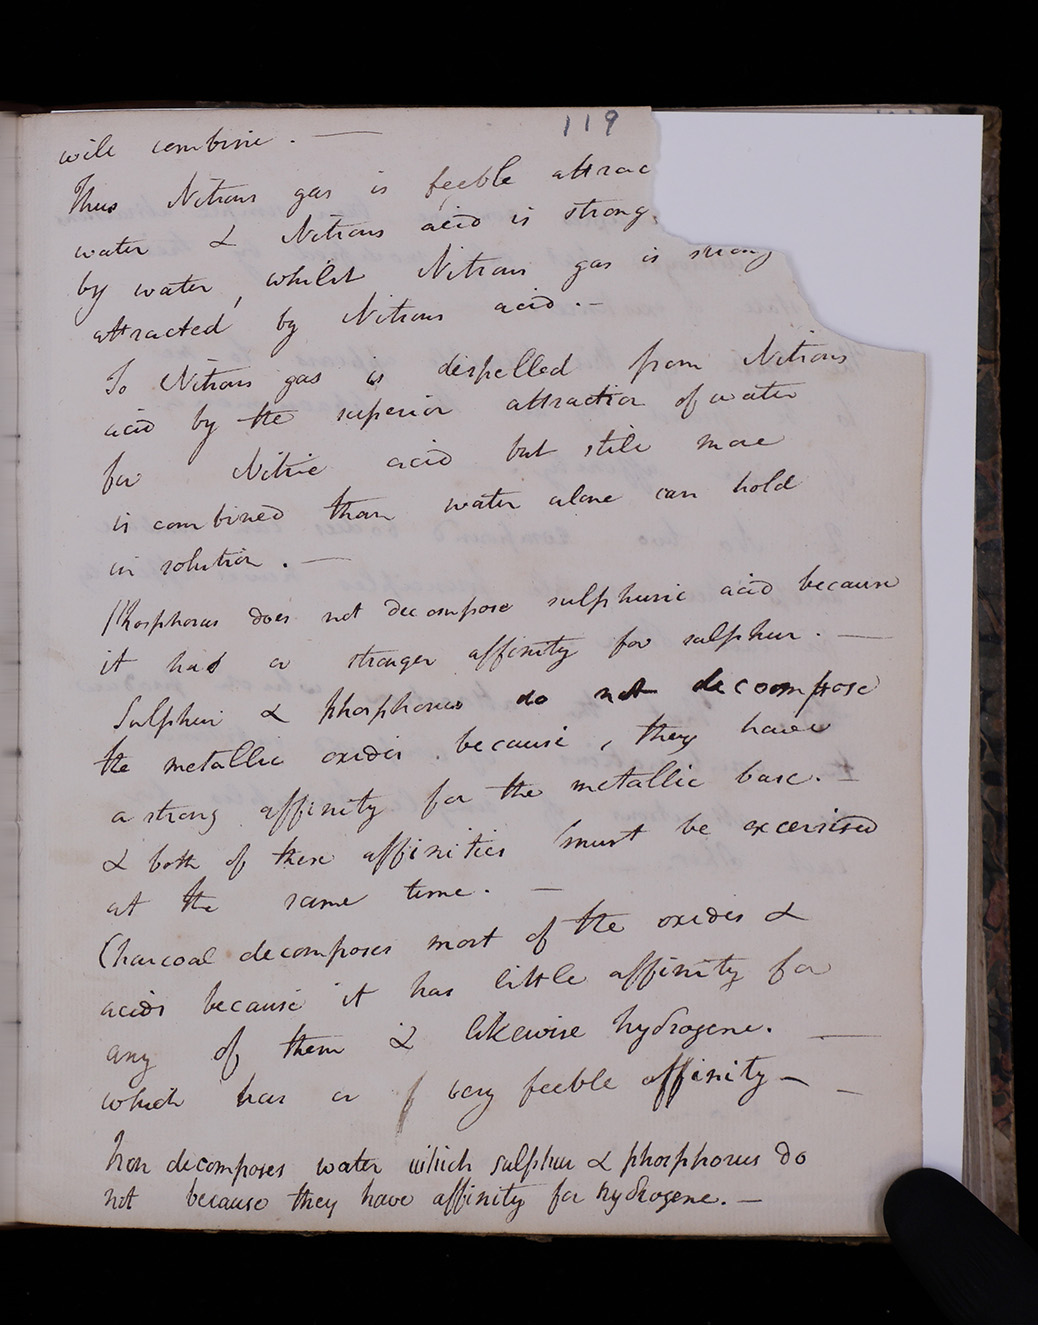 119
will combine. —
Thus Nitrous gas is feeble attrac
water & Nitrous acid is strong
by water, whilst Nitrous gas is strong
attracted by Nitrous acid. —
So Nitrous gas is dispelled from Nitrous
acid by the superior attraction of water
for Nitric acid but still more
is combined than water alone can hold
in solution. —
Phosphorus does not decompose sulphuric acid because
it has a stronger affinity for sulphur. —
Sulphur & phosphorus do not decompose
the metallic oxides because, they have
a strong affinity for the metallic base. —
& both of these affinities must be excersised
at the same time. —
Charcoal decomposes most of the oxides &
acids because it has little affinity for
any of them & likewise hydrogene. —
which has a very feeble affinity — —
Iron decomposes water which sulphur & phosphorus do
not because they have affinity for hydrogene. —